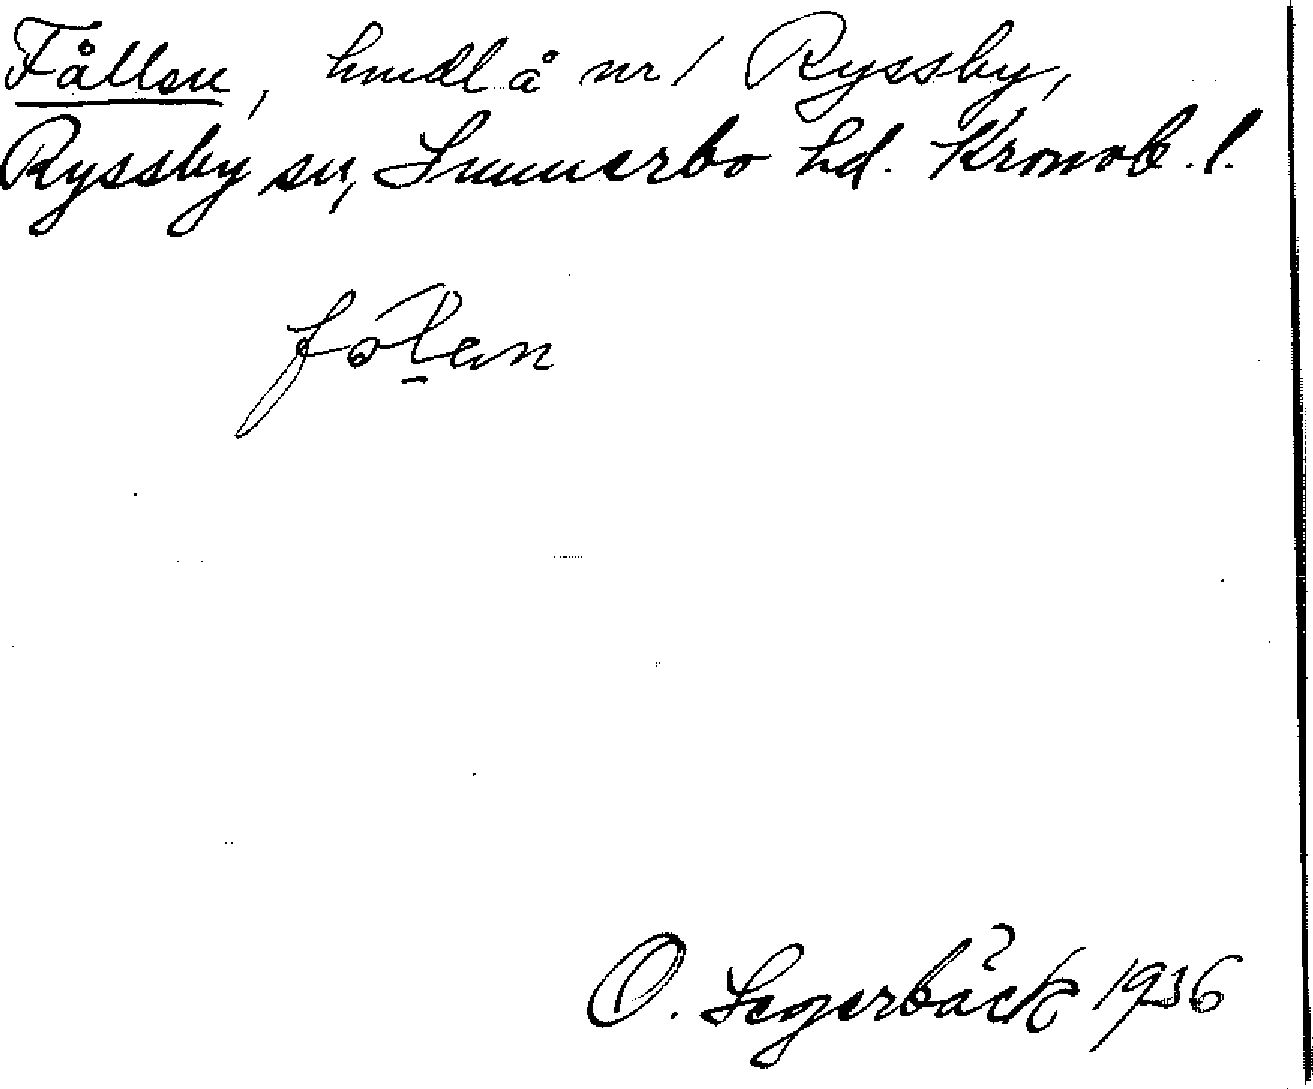 Fållen, hmdl å nr 1 Ryssby,
Ryssby sn, Sunnerbo hd. Kronob. l.
fålan
O. Segerbäck 1936